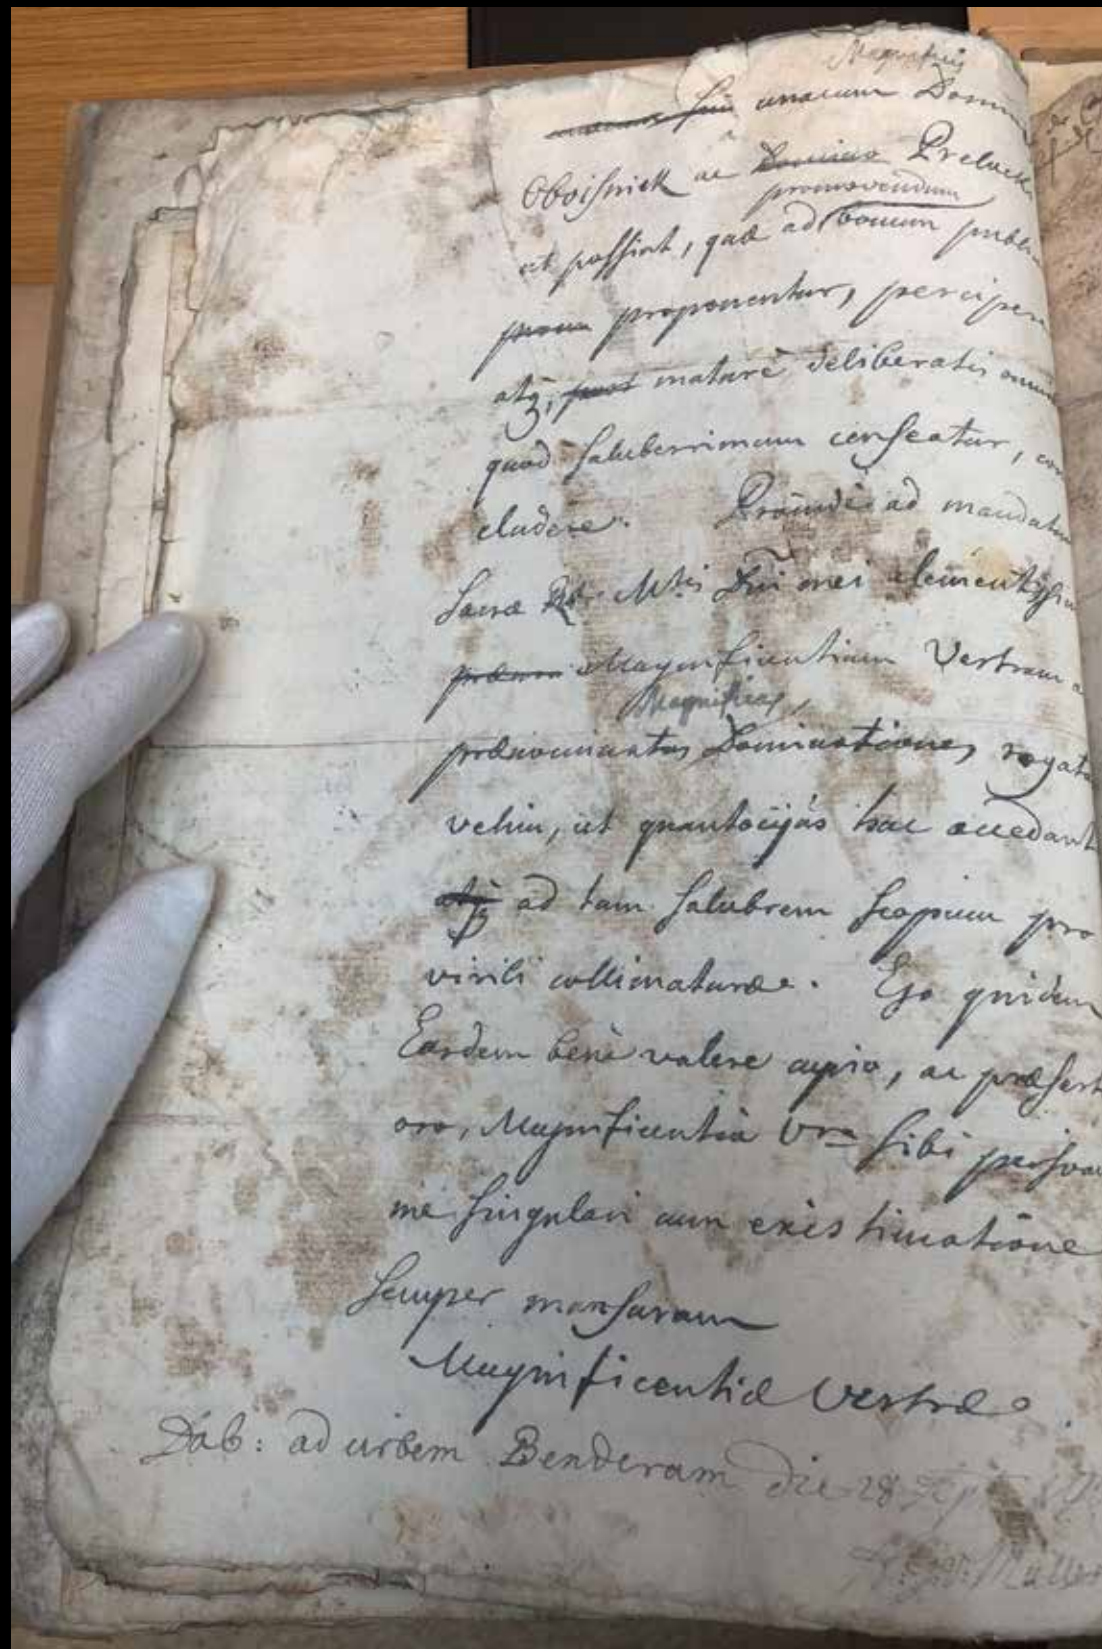 Magnificis
unacum Domin
Oboisniek ac Domino Preluck
promovendum
ut possint, quæ ad bonum publi
proponentur, percipere
atq;, post maturè deliberatis omni
quod saluberrimum censeatur, con
cludere. Proinde ad mandatu
Sacræ Mtis Dni mei clementissi
Magnificentiam Vestram a
Magnificas,
prænominatas Dominationes, rogat
velim, ut quantocijùs huc accedant
atq; ad tam salubrem scopum pro
virili collimaturæ. Ego quidem
Easdem benè valere cupio, ac præsert
oro, Magnificentia Vra sibi persua
me singulari cum existimatione
semper mansurum
Magnificentiæ Vestræ.
Dab: ad urbem Benderam die 28
Müller